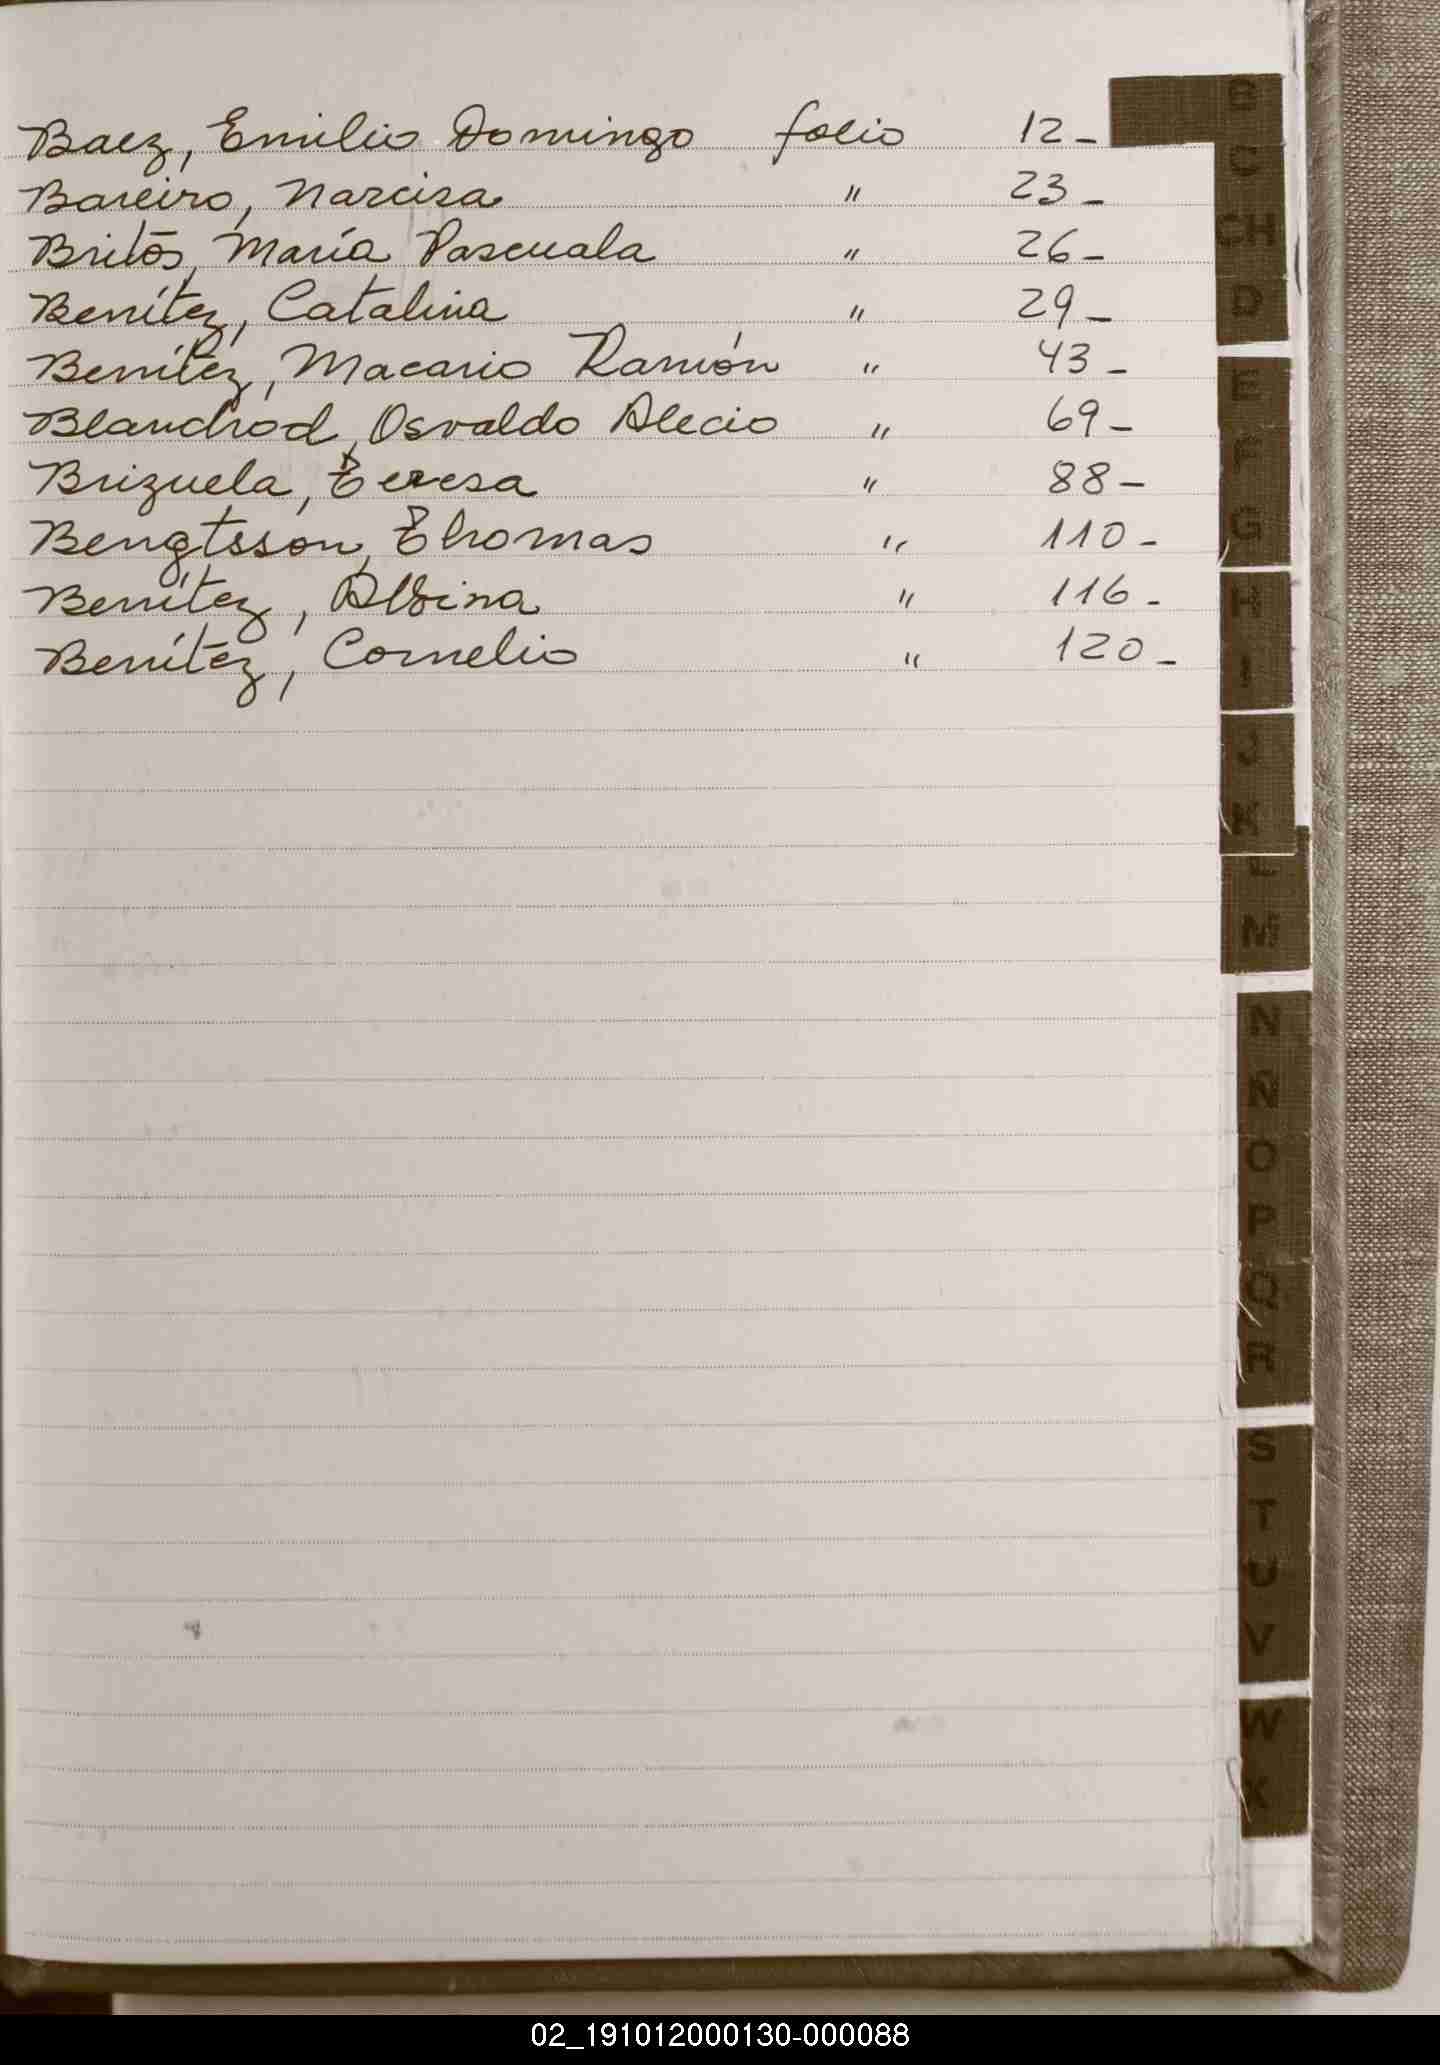 Baez, Emilio Domingo folio 12-
Bareiro, Narcisa " 23-
Britos, María Pascuala " 26-
Benítez, Catalina " 29-
Benítez, Macario Ramón " 43-
Blanchod, Osvaldo Alecio " 69-
Brizuela, Teresa " 88-
Bengtsson, Thomas " 110-
Benítez, Albina " 116-
Benítez, Cornelio " 120-
B
C
CH
D
E
F
G
H
I
J
K
L
M
N
Ñ
O
P
Q
R
S
T
U
V
W
X
02_191012000130-000088